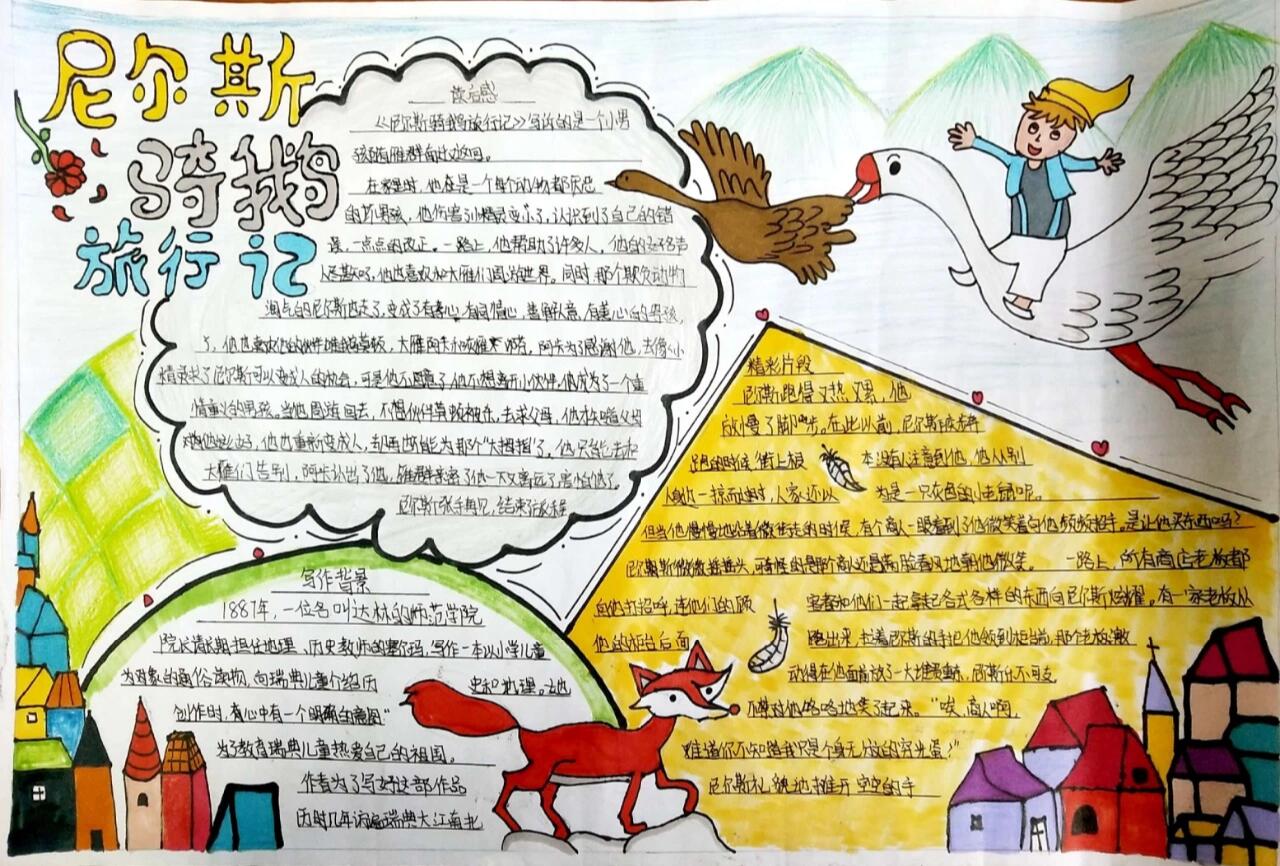 尼尔斯
骑鹅
旅行记
读后感
《尼尔斯骑鹅旅行记》写诉的是一个小男
孩随雁群南北返回。
在家里时,他在是一个每个动物都厌恶
的坏男孩,他伤害了小精灵变小了,认识到了自己的错
误,一点点的改正。一路上,他帮助了许多人,他的
他也喜欢和大雁们周游世界。同时那个欺负动物
淘气的尼尔斯也走了,变成了有素心,有同情心,善解人意,有善心的男孩,
大雁阿卡和灰雁邓芬,阿卡为了感谢他,去像小
精灵求了尼尔斯可以变成人的机会,可是他不愿意了他不想离开小伙伴他成为了一个重
情重义的男孩。当他周游回去,不想伙伴莫顿被杀,去求父母,
他也重新变成人,却再也不能为那个“大拇指”了,他只能去和
大雁们告别,阿卡认出了他,雁群亲密了他一下又离远了害怕他了。
尼尔斯张手再见,结束了旅程
写作背景
1887年,一位名叫达林的师范学院
院长请长期担任地理、历史教师的塞尔玛,写作一本以小学儿童
为对象的通俗读物,向瑞典儿童介绍历 史和地理。她
创作时,有心中有一个明确的意图”
为了教育瑞典儿童热爱自己的祖国。
作者为了写好这部作品
历时几年访遍瑞典大江南北
精彩片段
尼尔斯跑得又热又累,他
放慢了脚步。在此以前,尼尔斯疾奔
跑的时候,街上根 本没有人注意到他,他从别
人身边一掠而过时,人家还以 为是一只灰色的小老鼠呢。
但当他慢慢地沿着街走的时候,有个商人一眼看到了他微笑着向他频频招手。是让他买东西吗?
尼尔斯微微摇摇头,可奇怪的是那个商人还是满脸春风地朝他微笑。 一路上,所有商店老板都
向他打招呼,连他们的顾 客都和他们一起拿起各式各样的东西向尼尔斯炫耀。有一家老板从
他的柜台后面 跑出来,拉着尼尔斯的手把他领到柜台前,那个老板激
动得在他面前放了一大堆
不禁对他咯咯地笑了起来。“唉,商人啊,
难道你不知道我只是个身无分文的穷光蛋?”
尼尔斯礼貌地推开空空的手